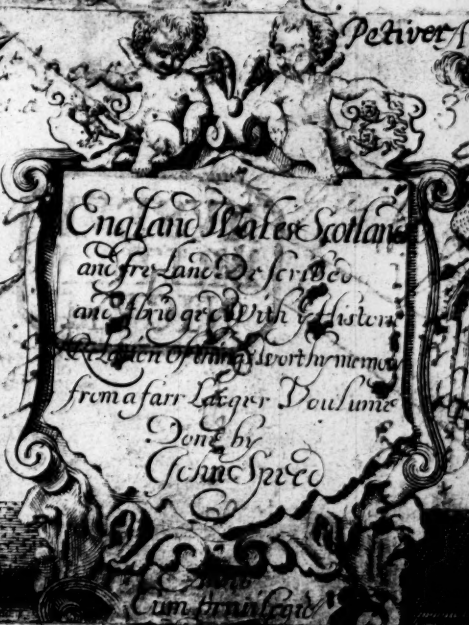 Petiver
3
England Wales Scotland
and Ireland Described
and Abridged With ye Historic
Relation of things worthy memory
from a farr larger Voulume
Done by
John Speed
Anno
Cum privilegio